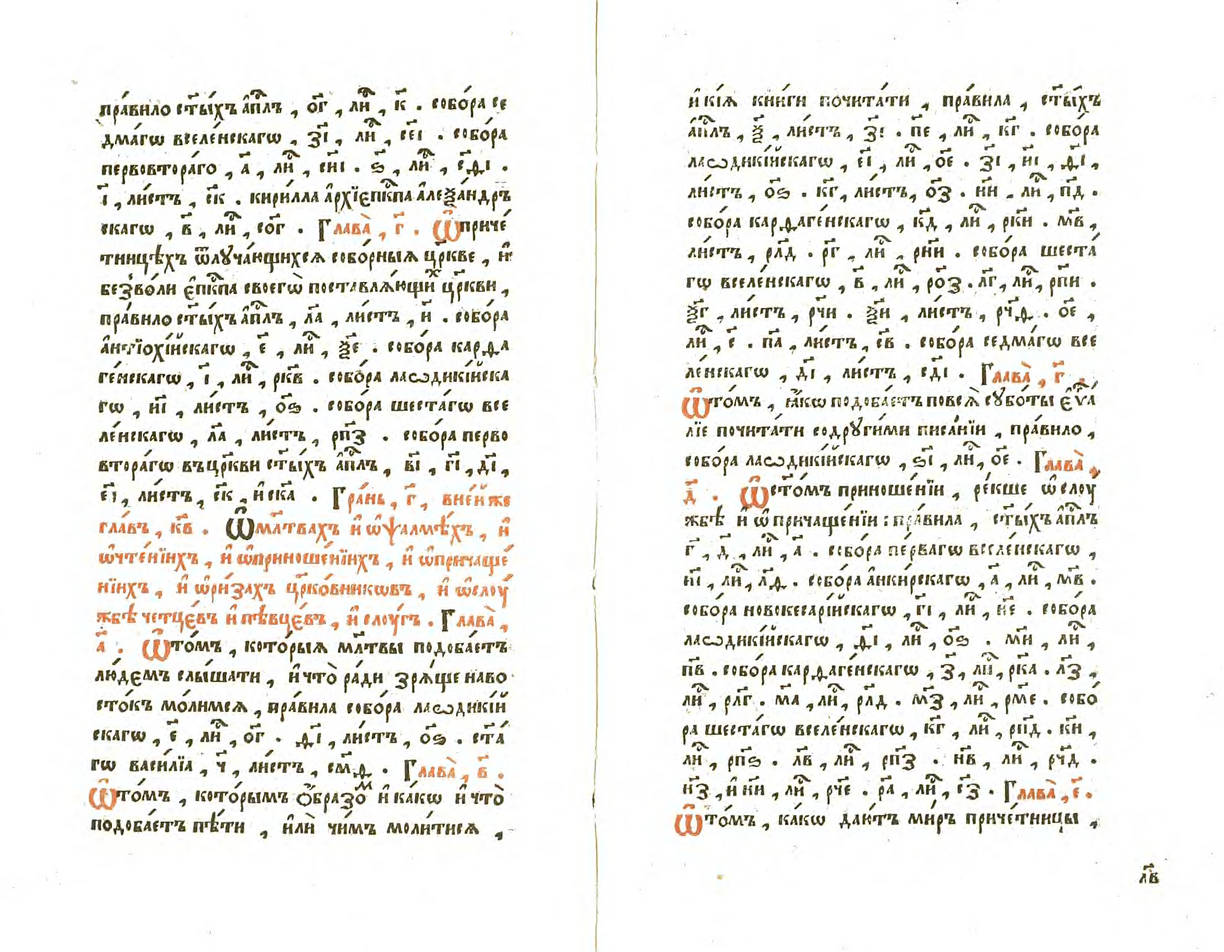 пра́вило ст҃ы́хъ а҆п҃лъ , о҃г , ли҇ , к҃ . собо́ра се
дма́гѡ вселе́нскагѡ , з҃і , ли҇ , се҃і . собо́ра
первовтора́го , а҃ , ли҇ , си҃і . ѕ҃ , ли҇ , сѳ҃і .
і҃ , ли́стъ , с҃к . кири́лла а҆рхїе҆пк҃па а҆леѯа́ндръ
скагѡ , в҃ , ли҇ , со҃г . Глава̀ , г҃ . Ѿприче́
тницѣхъ ѿлуча́ющихсѧ собо́рныѧ цр҃кве , и҆
без̾во́ли є҆пк҃па своегѡ̀ поставлѧ́ющихъ цр҃кви ,
пра́вило ст҃ы́хъ а҆п҃лъ , л҃а , ли́стъ , и҃ . собо́ра
а҆нтїохі́йскагѡ , е҃ , ли҇ , ѯ҃е . собо́ра карѳа
ге́нскагѡ , і҃ , ли҇ , рк҃в . собо́ра лаѡдикі́йска
гѡ , н҃і , ли́стъ , о҃ѕ . собо́ра шеста́гѡ все
ле́нскагѡ , л҃а , ли́стъ , рп҃з . собо́ра перво
втора́гѡ въцр҃кви ст҃ы́хъ а҆п҃лъ , в҃і , г҃і , д҃і ,
е҃і , ли́стъ , с҃к , и҆ск҃а . Гра́нь , г҃ , внеи́же
гла́въ , к҃в . Ѿмл҃твахъ и҆ ѡ҆ѱалмѣ́хъ , и҆
ѡ҆чте́нїихъ , и҆ ѡ҆приноше́нїихъ , и҆ ѡ҆причаще́
нїихъ , и҆ ѡ҆ри́захъ цр҃ко́вникѡвъ , и҆ ѡ҆слоу́
жбѣ четце́въ и҆ пѣвце́въ , и҆ слоу́гъ . Глава̀ ,
а҃ . Ѿто́мъ , кото́рыѧ мл҃твы подоба́етъ
лю́демъ слы́шати , и҆ что̀ ра́ди зрѧ́ще наво
сто́къ мо́лимсѧ , пра́вила собо́ра лаѡдикі́й
скагѡ , е҃ , ли҇ , о҃г . ѳ҃і , ли́стъ , о҃ѕ . ст҃а́
гѡ васи́лїа , ч҃ , ли́стъ , см҃ѳ . Глава̀ , в҃ .
Ѿто́мъ , кото́рымъ ѻ҆́бразомъ и҆ ка́кѡ и҆ что̀
подоба́етъ пѣ́ти , и҆лѝ чи́мъ моли́тисѧ ,
и҆ кі́ѧ кни́ги почита́ти , пра́вила , ст҃ы́хъ
а҆п҃лъ , ѯ҃ , ли́стъ , з҃і . п҃е , ли҇ , к҃г . собо́ра
лаѡдикі́йскагѡ , е҃і , ли҇ , о҃е . з҃і , н҃і , ѳ҃і ,
ли́стъ , о҃ѕ . к҃г , ли́стъ , о҃з . н҃и . ли҇ , п҃д .
собо́ра карѳаге́нскагѡ , к҃д , ли҇ , рк҃и . м҃в ,
ли́стъ , рл҃д . р҃г , ли҇ , рн҃и . собо́ра шеста́
гѡ вселе́нскагѡ , в҃ , ли҇ , ро҃з . л҃г , ли҇ , рп҃и .
ѯ҃г , ли́стъ , рч҃и . ѯ҃и , ли́стъ , рч҃ѳ . о҃е ,
ли҇ , с҃ . п҃а , ли́стъ , с҃в . собо́ра седма́гѡ все
ле́нскагѡ , д҃і , ли́стъ , сд҃і . Глава̀ , г҃ .
Ѿто́мъ , ꙗ҆́кѡ подоба́етъ повсѧ̀ сꙋббо́ты є҆ѵ҃а
лїе почита́ти содрꙋги́ми писа́нїи , пра́вило ,
собо́ра лаѡдикі́йскагѡ , ѕ҃і , ли҇ , о҃е . Глава̀ ,
д҃ . Ѿсто́мъ приноше́нїи , ре́кше ѡ҆слоу́
жбѣ и҆ ѡ҆причаще́нїи : пра́вила , ст҃ы́хъ а҆п҃лъ
г҃ , д҃ , ли҇ , а҃ . собо́ра пе́рвагѡ вселе́нскагѡ ,
н҃і , ли҇ , л҃ѳ . собо́ра а҆нки́рскагѡ , а҃ , ли҇ , м҃в .
собо́ра новокесарі́йскагѡ , г҃і , ли҇ , н҃е . собо́ра
лаѡдикі́йскагѡ , ѳ҃і , ли҇ , о҃ѕ . м҃и , ли҇ ,
п҃в . собо́ра карѳаге́нскагѡ , з҃ , ли҇ , рк҃а . л҃з ,
ли҇ , рл҃г . м҃а , ли҇ , рл҃д . м҃з , ли҇ , рм҃е . собо́
ра шеста́гѡ вселе́нскагѡ , к҃г , ли҇ , рп҃д . к҃и ,
ли҇ , рп҃ѕ . л҃в , ли҇ , рп҃з . н҃в , ли҇ , рч҃д .
н҃з , и҆ н҃и , ли҇ , рч҃е . р҃а , ли҇ , с҃з . Глава̀ , е҃ .
Ѿто́мъ , ка́кѡ даю́тъ ми́ръ приче́тницы ,
л҃в